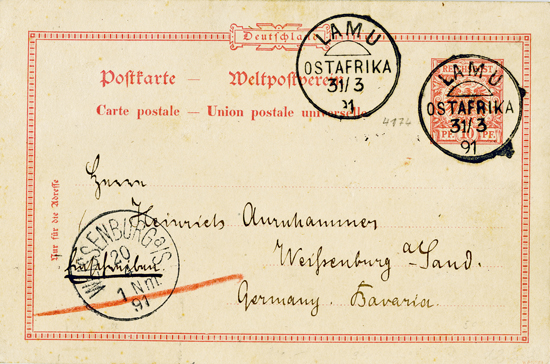 Deutschland
Postkarte — Weltpostverein
Carte postale — Union postale universelle
LAMU
OSTAFRIKA
31/3
91
LAMU
OSTAFRIKA
31/3
91
REICHSPOST
10 PF.
4174
Nur für die Adresse
Herrn
Heinrich Aurnhammer
Weißenburg a/Sand.
Germany. Bavaria
WEISSENBURG a/S
29
1 Nm.
91